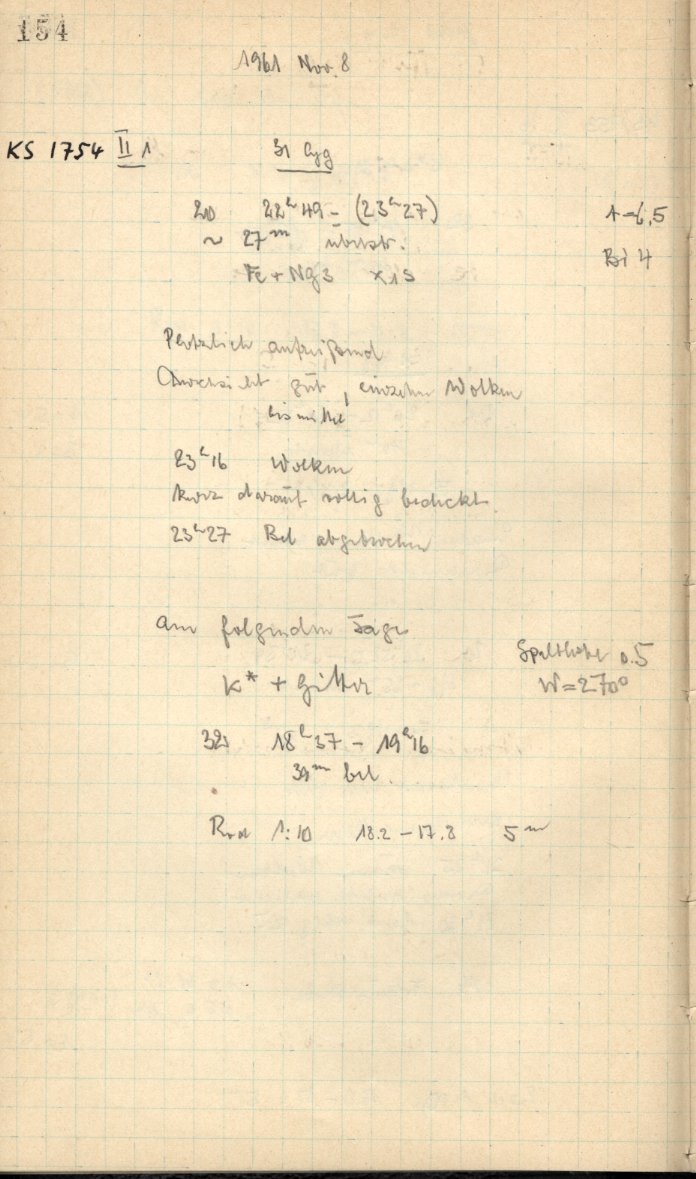 154
1961 Nov. 8
KS 1754 II 1 31 Cyg
20 22h 49 - (23h 27) 1 = 6,5
~ 27m Bi 4
Fe + Ng3 x 15
Plötzlich aufreißend
Durchsicht gut, einzelne Wolken
bis mittel
23h 16 Wolken
kurz darauf völlig bedeckt.
23h 27 Bel abgebrochen
am folgenden Tage
Spalthöhe 0.5
K* + Gitter W = 270°
32 18h 37 - 19h 16
39m bel.
1:10 18.2 - 17.8 5m